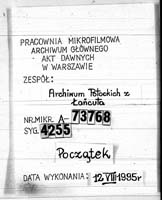 PRACOWNIA MIKROFILMOWA
ARCHIWUM GŁÓWNEGO
AKT DAWNYCH
W WARSZAWIE
ZESPÓŁ:
Archiwum Potockich z
Łańcuta
NR.MIKR. A-73768
SYG. 4255
Początek
DATA WYKONANIA: 12 VIII 1985r